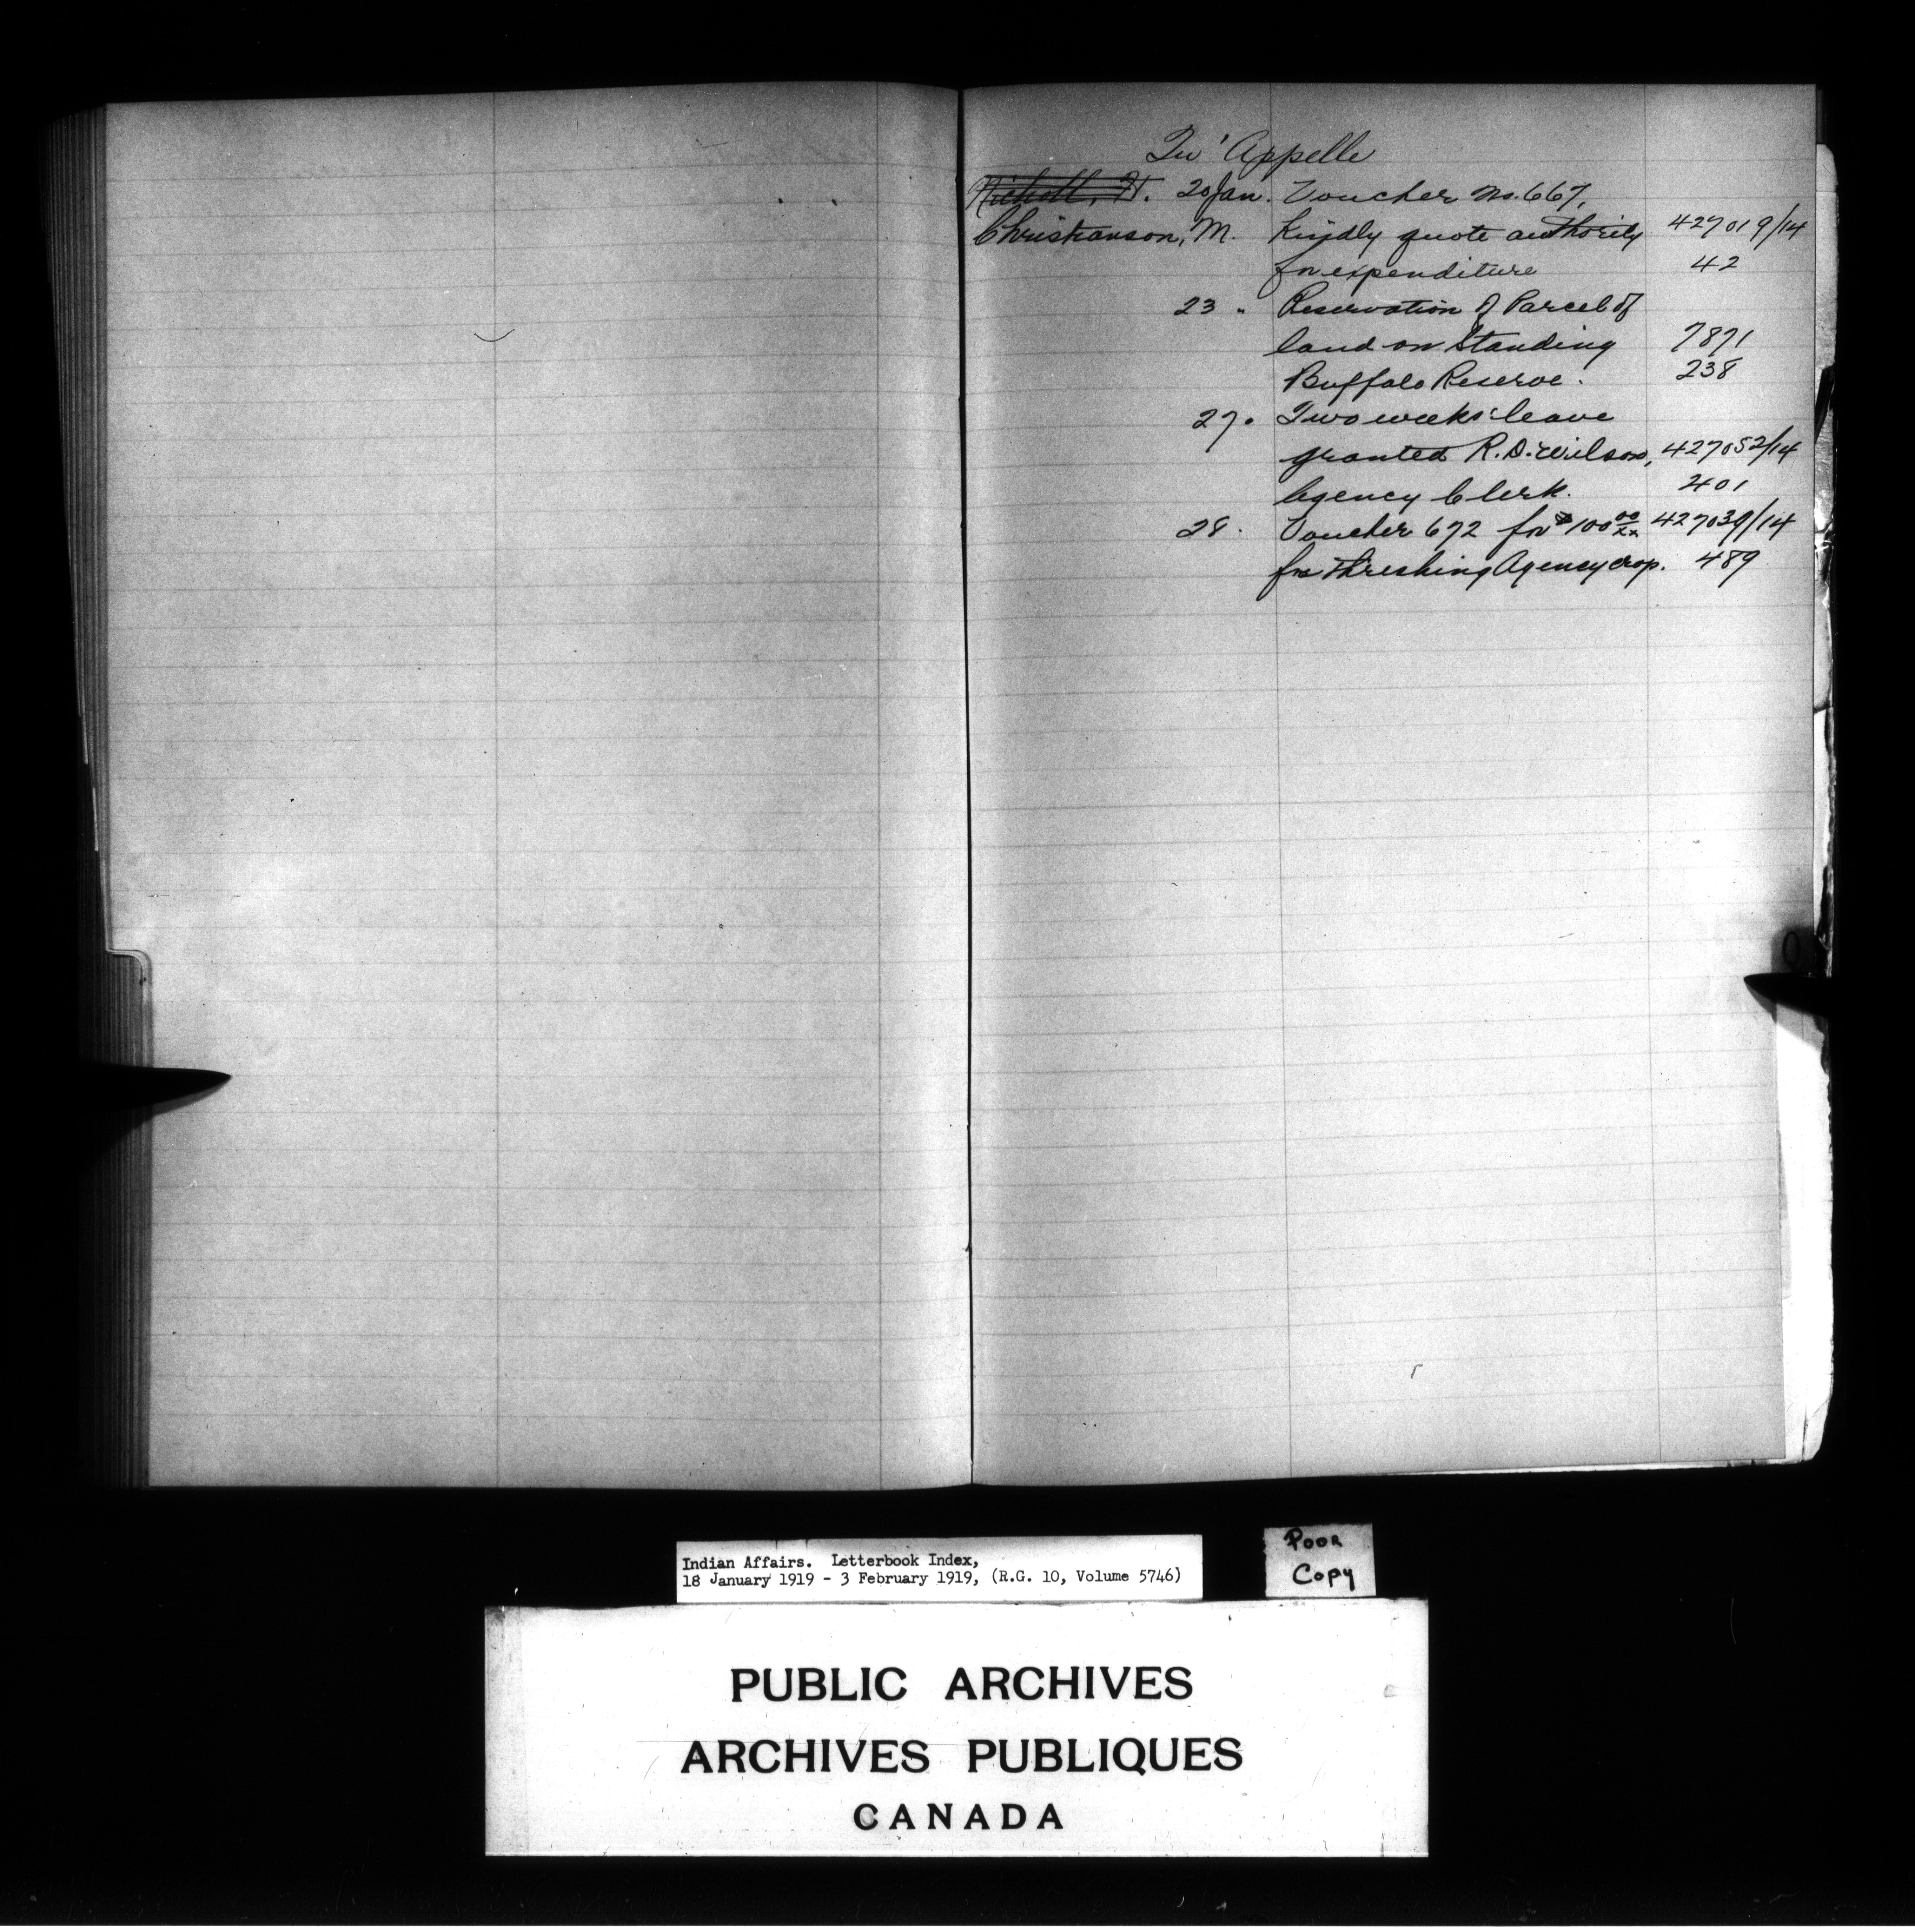 Qu'Appelle
Nichol, H. 20 Jan. Voucher No. 667,
Christianson, M. Kindly quote authority 427019/14
for expenditure 42
23 " Reservation of Parcel of
land on Standing 7871
Buffalo Reserve. 238
27. Two weeks' leave
granted R.D. Wilson, 427052/14
Agency Clerk. 401
28. Voucher 672 for $100 00/xx 427039/14
for threshing Agency crop. 489
Indian Affairs. Letterbook Index,
18 January 1919 - 3 February 1919, (R.G. 10, Volume 5746)
Poor
Copy
PUBLIC ARCHIVES
ARCHIVES PUBLIQUES
CANADA